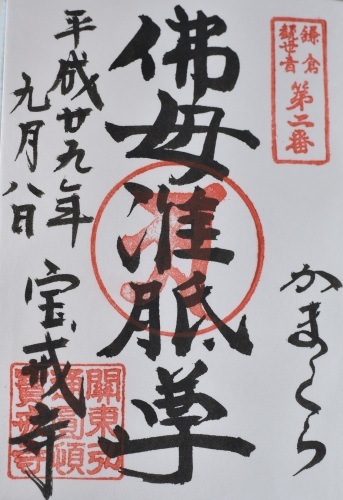 鎌倉
観世音
第二番
かまくら
佛母准胝尊
平成廿九年
九月八日
宝戒寺
關東弘
通圓頓
寶戒寺